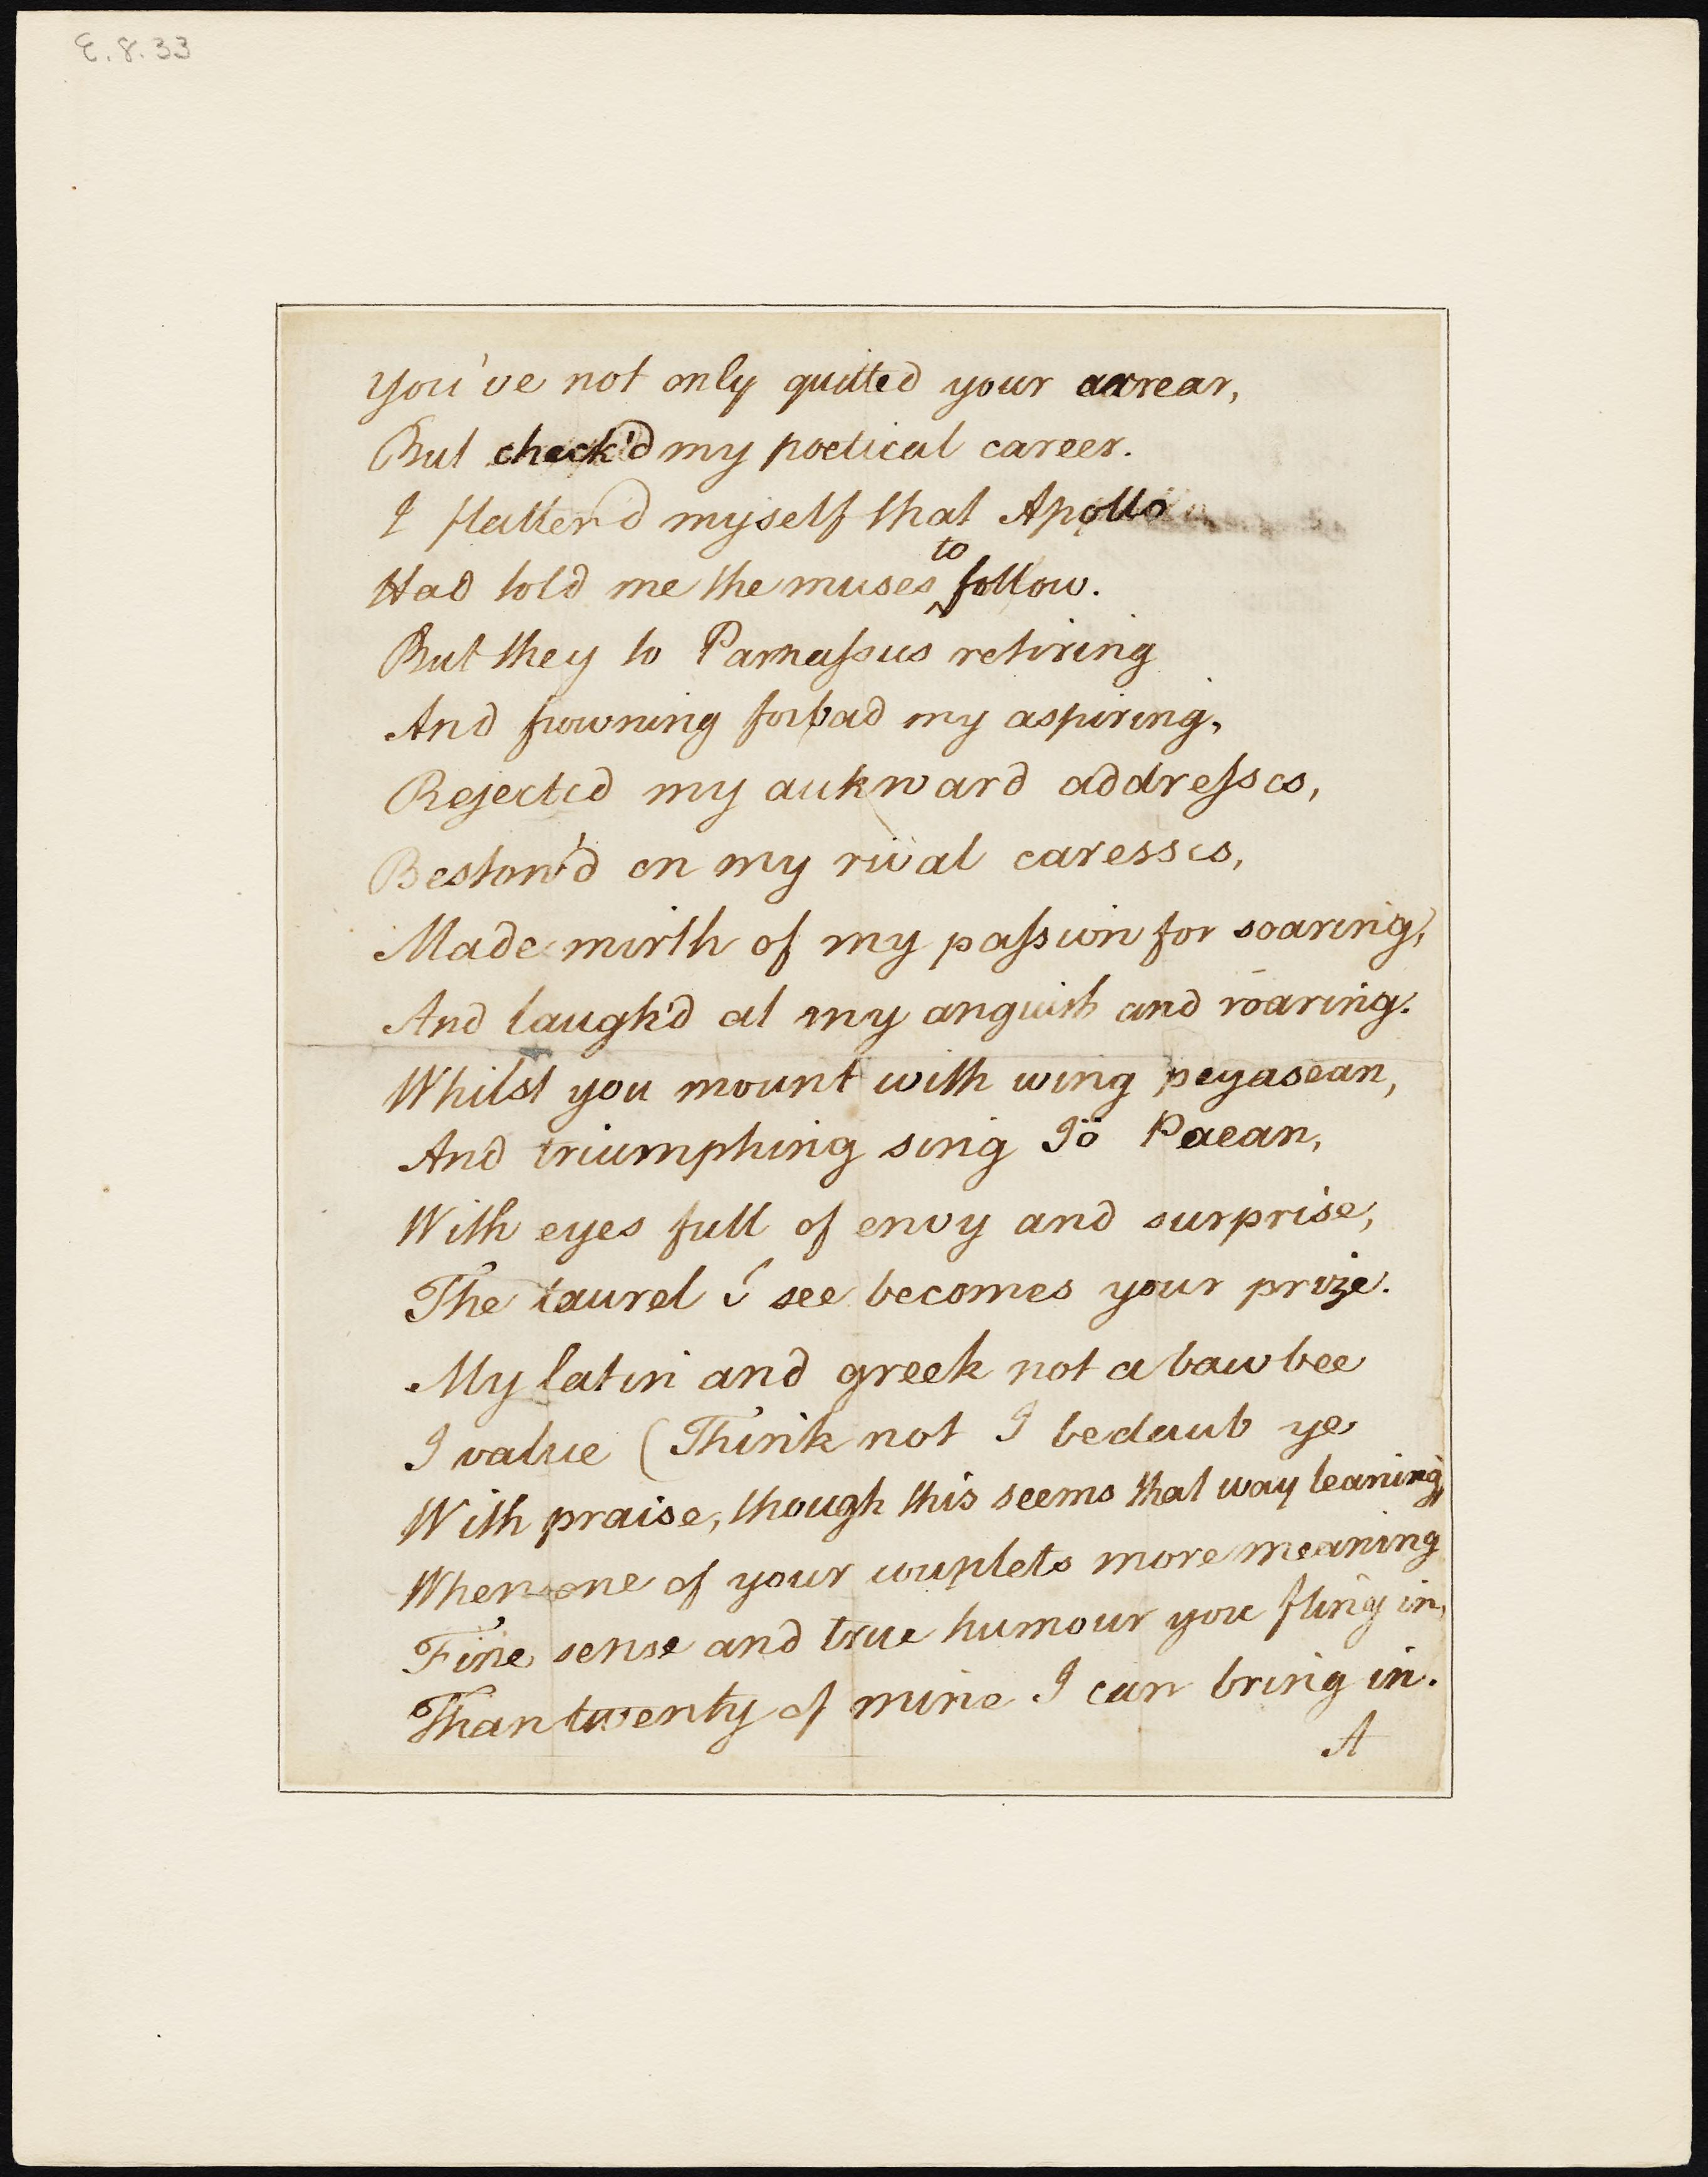 E.8.33
You've not only quitted your arrear,
But check'd my poetical career.
I flatter'd myself that Apollo
Had told me the muses to follow.
But they to Parnaſsus retiring
And frowning forbad my aspiring,
Rejected my aukward addreſses,
Bestow'd on my rival caresses,
Made mirth of my paſsion for soaring,
And laugh'd at my anguish and roaring.
Whilst you mount with wing pegasean,
And triumphing sing Iö Paean,
With eyes full of envy and surprise,
The laurel I see becomes your prize.
My latin and greek not a bawbee
I value (Think not I bedaub ye
With praise, though this seems that way leaning)
When one of your couplets more meaning
Fine sense and true humour you fling in,
Than twenty of mine I can bring in.
A